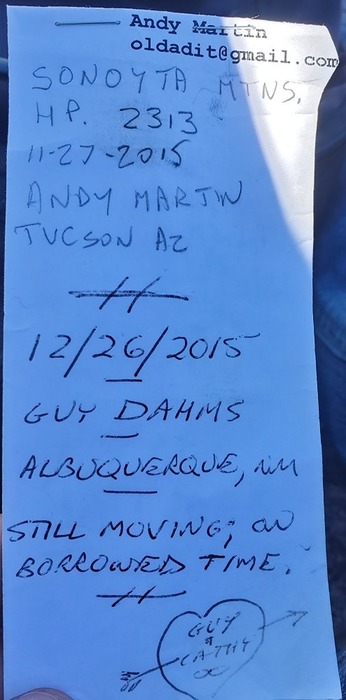 Andy Martin
oldadit@gmail.com
SONOYTA MTNS.
HP. 2313
11-27-2015
ANDY MARTIN
TUCSON AZ
12/26/2015
GUY DAHMS
ALBUQUERQUE, NM
STILL MOVING; ON
BORROWED TIME.
GUY
&
CATHY